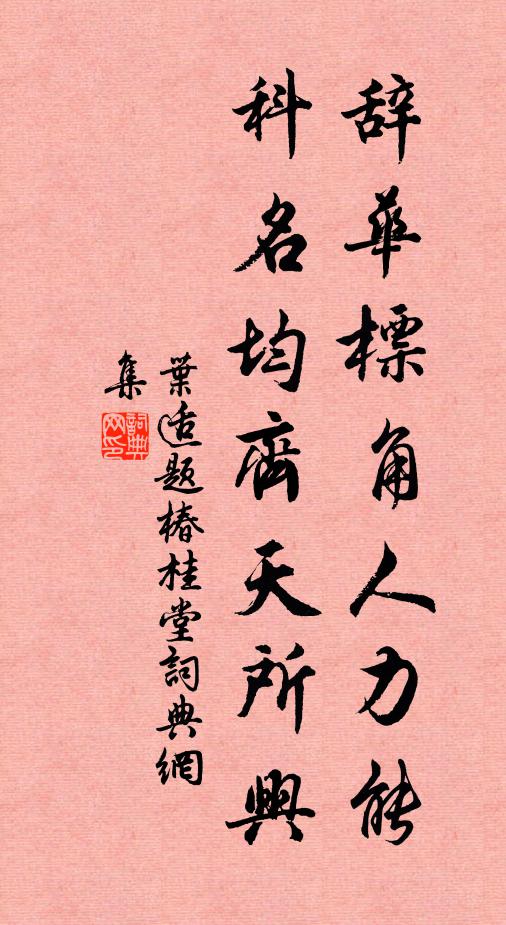 辞華標角人力能
科名均齊天所興
葉适題椿桂堂詞典網
集
詞典
网印